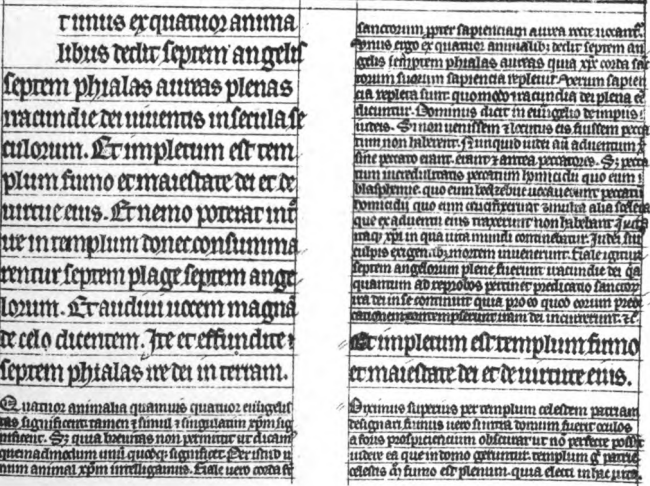 t unus ex quatuor anima
libus dedit septem angelis
septem phialas aureas plenas
iracundie dei uiuentis in secula se
culorum. Et impletum est tem
plum fumo et maiestate dei et de
uirtute eius. Et nemo poterat int
ire in templum donec consumma
rentur septem plage septem ange
lorum. Et audiui uocem magnā
de celo dicentem. Ite et effundite
septem phialas ire dei in terram.
Quatuor animalia quamuis quatuor euāgelis
tas significent tamen simul singulatim xpm sig
nificent. Sz quia breuitas non permittit ut dicam
quemadmodum unū quodqz significet. Per istud u
num animal xpm intelligamus. Fiale uero corda sc
sanctorum propter sapienciam aurea recte uocant.
Unus ergo ex quatuor animalibz dedit septem an
gelis septem phialas aureas quia xpc corda sac
torum suorum sapiencia repleuit. Uerum sapien
cia repleta sunt quomodo iracundia dei plena ee
dicuntur. Dominus dicit in euāgelio de impiis i
udeis. Si non uenissem locutus eis fuissem pecca
tum non haberent. Nunquid iudei aū aduentum x
sine peccato erant. erant antea peccatores. Sz pecca
tum incredulitatis peccatum homicidii quo eum
blasphemie. quo eum beelzebue uocauerunt peccatū
homicidii quo eum crucifixerunt multa alia scelera
que ex aduentu eius traxerunt non habebant
itaqz xpi in qua uita mundi continebatur. Iudei sui
culpis exigentibz mortem inuenerunt. Fiale igitur
septem angelorum plene fuerunt iracundie dei qa
quantum ad reprobos pertinet predicatio sanctor
ira dei in se continuit quia pro eo quod eorum predi
cationem contempserunt iram dei incurrerunt.
Et impletum est templum fumo
et maiestate dei et de uirtute eius.
Diximus superius per templum celestem patriam
designari fumus uero sintra domum fuerit oculos
a foris prospiciencium obscurat ut nō perfecte possit
uidere ea que in domo geruntur. templum patrie
celestis fumo est plenum. quia electi in hac uita.